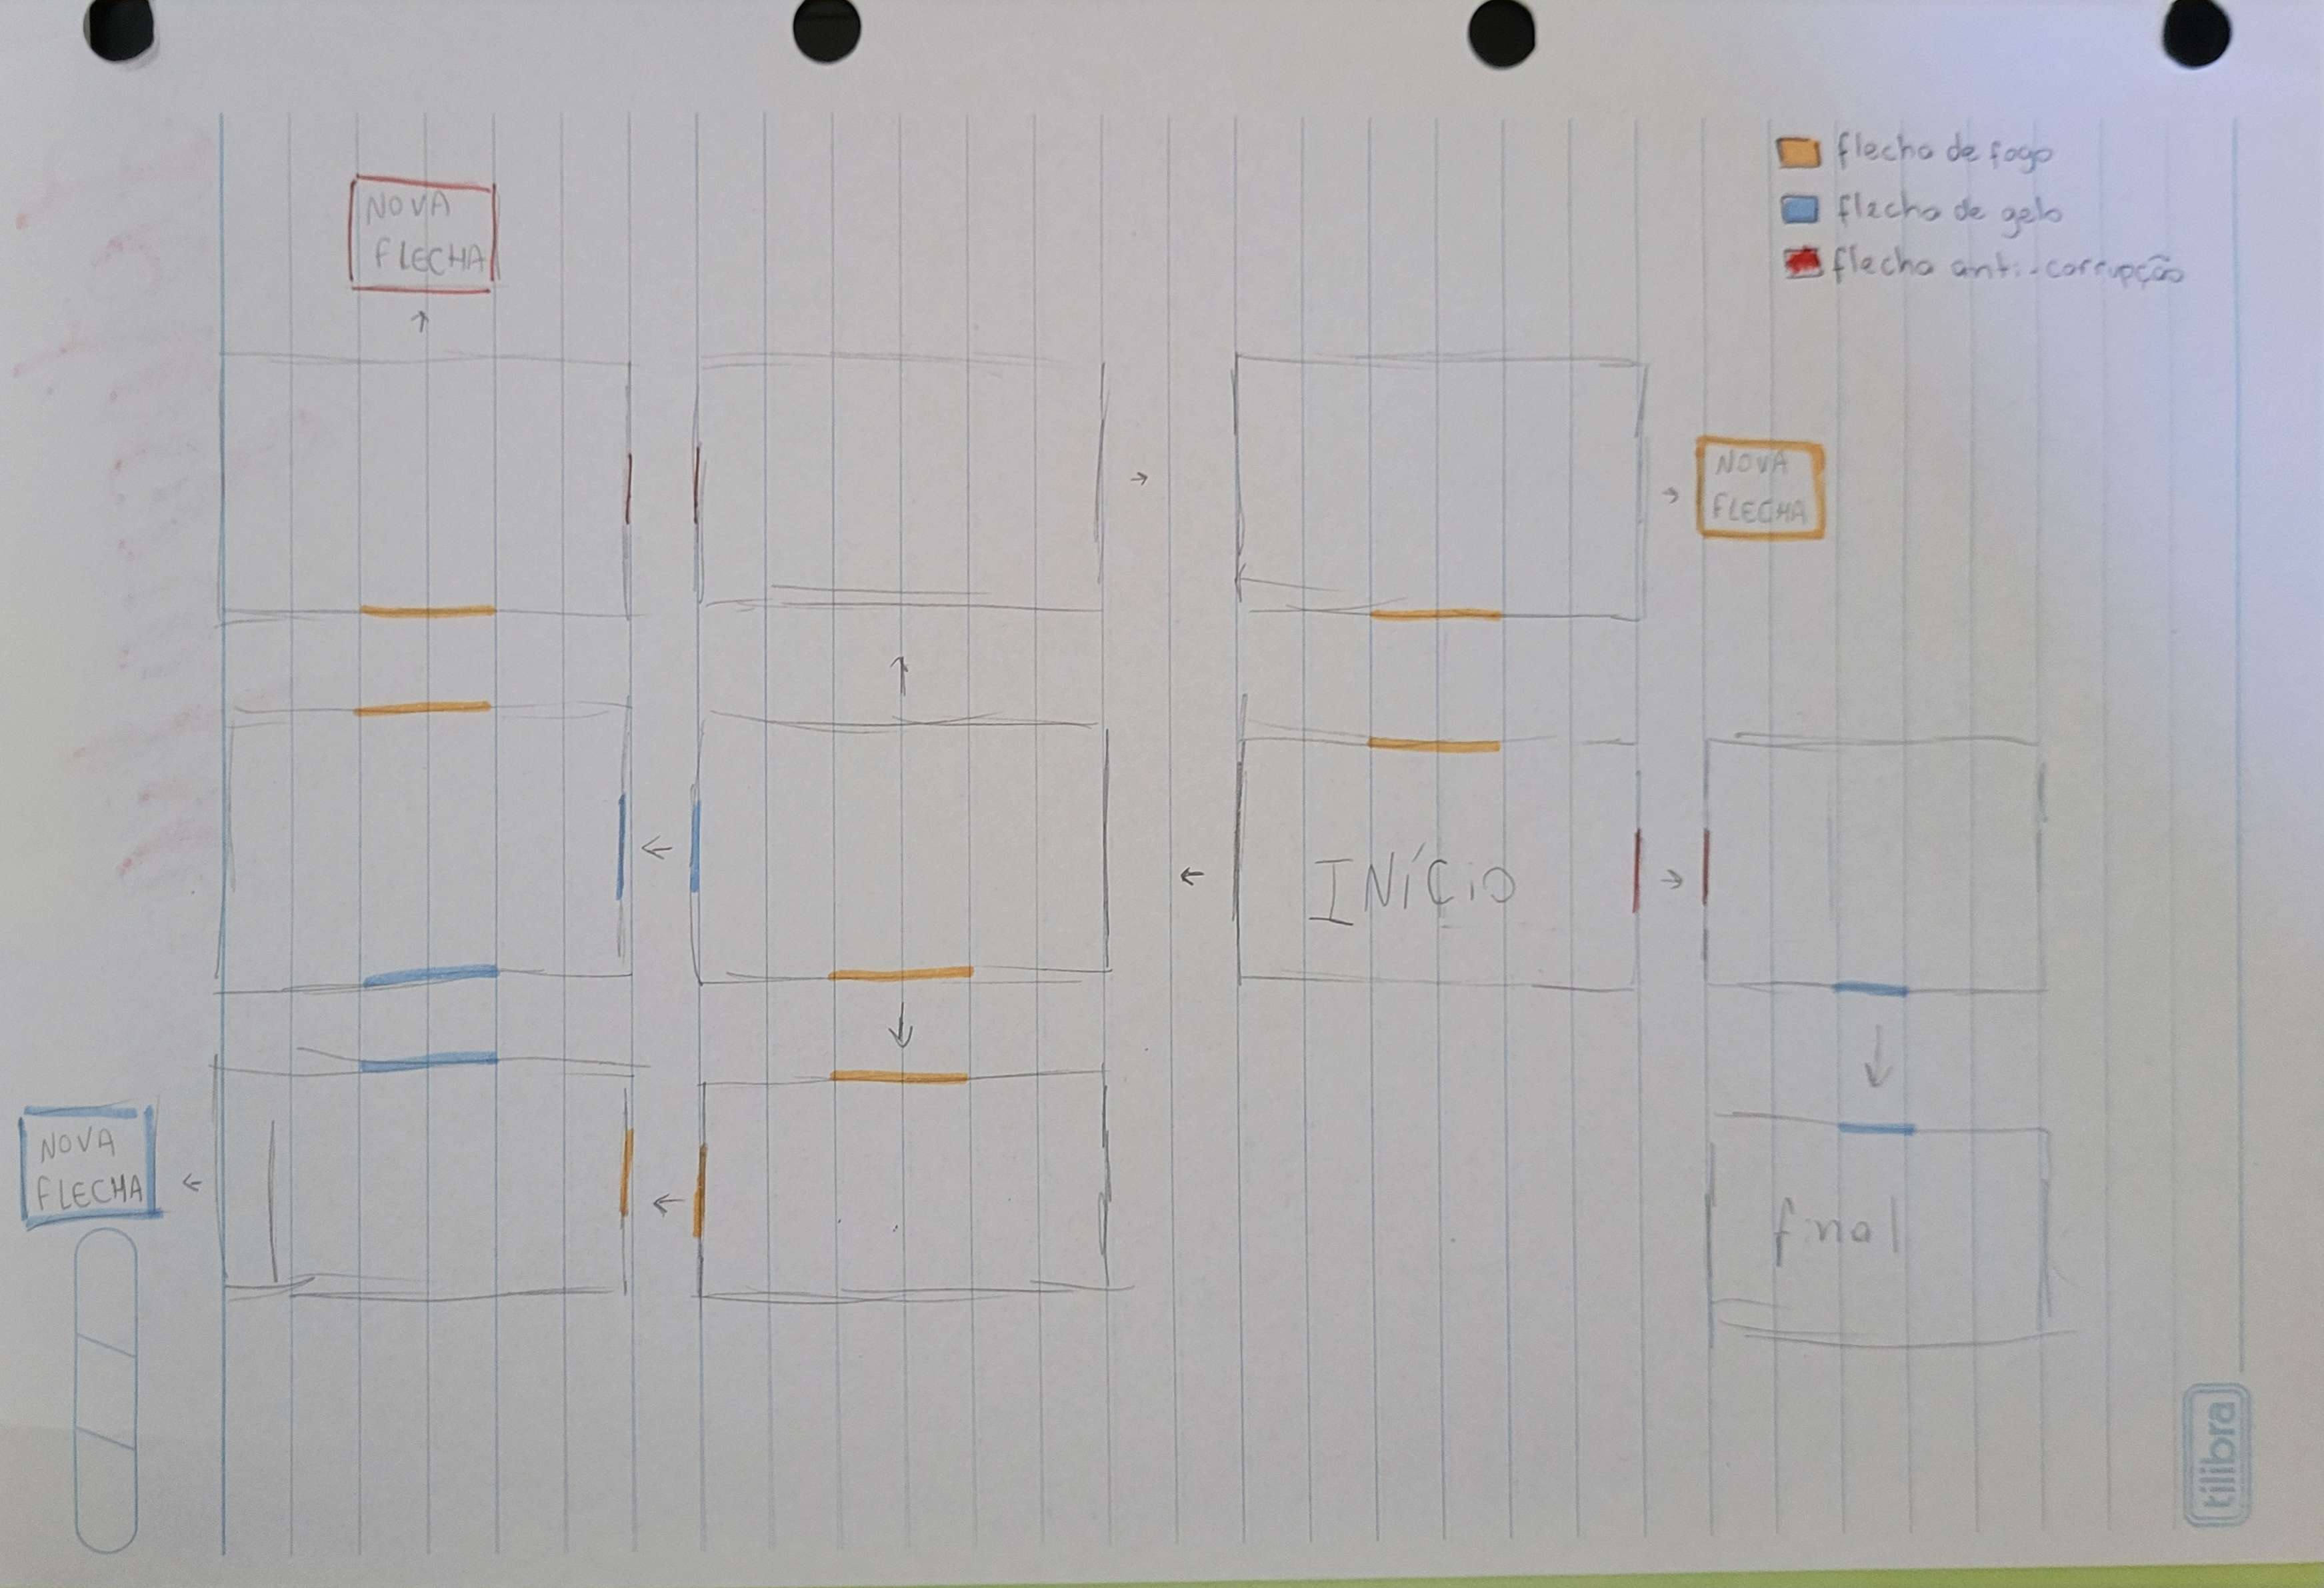 flecha de fogo
flecha de gelo
flecha anti-corrupção
NOVA
FLECHA
NOVA
FLECHA
INÍCIO
NOVA
FLECHA
final
tilibra